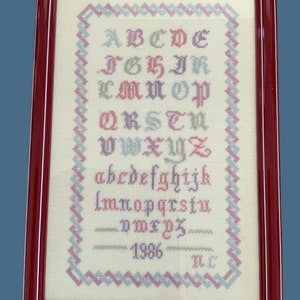 ABCDE
FGHIJK
LMNOP
QRSTU
VWXYZ
abcdefghijk
lmnopqrstu
vwxyz
1986
nc